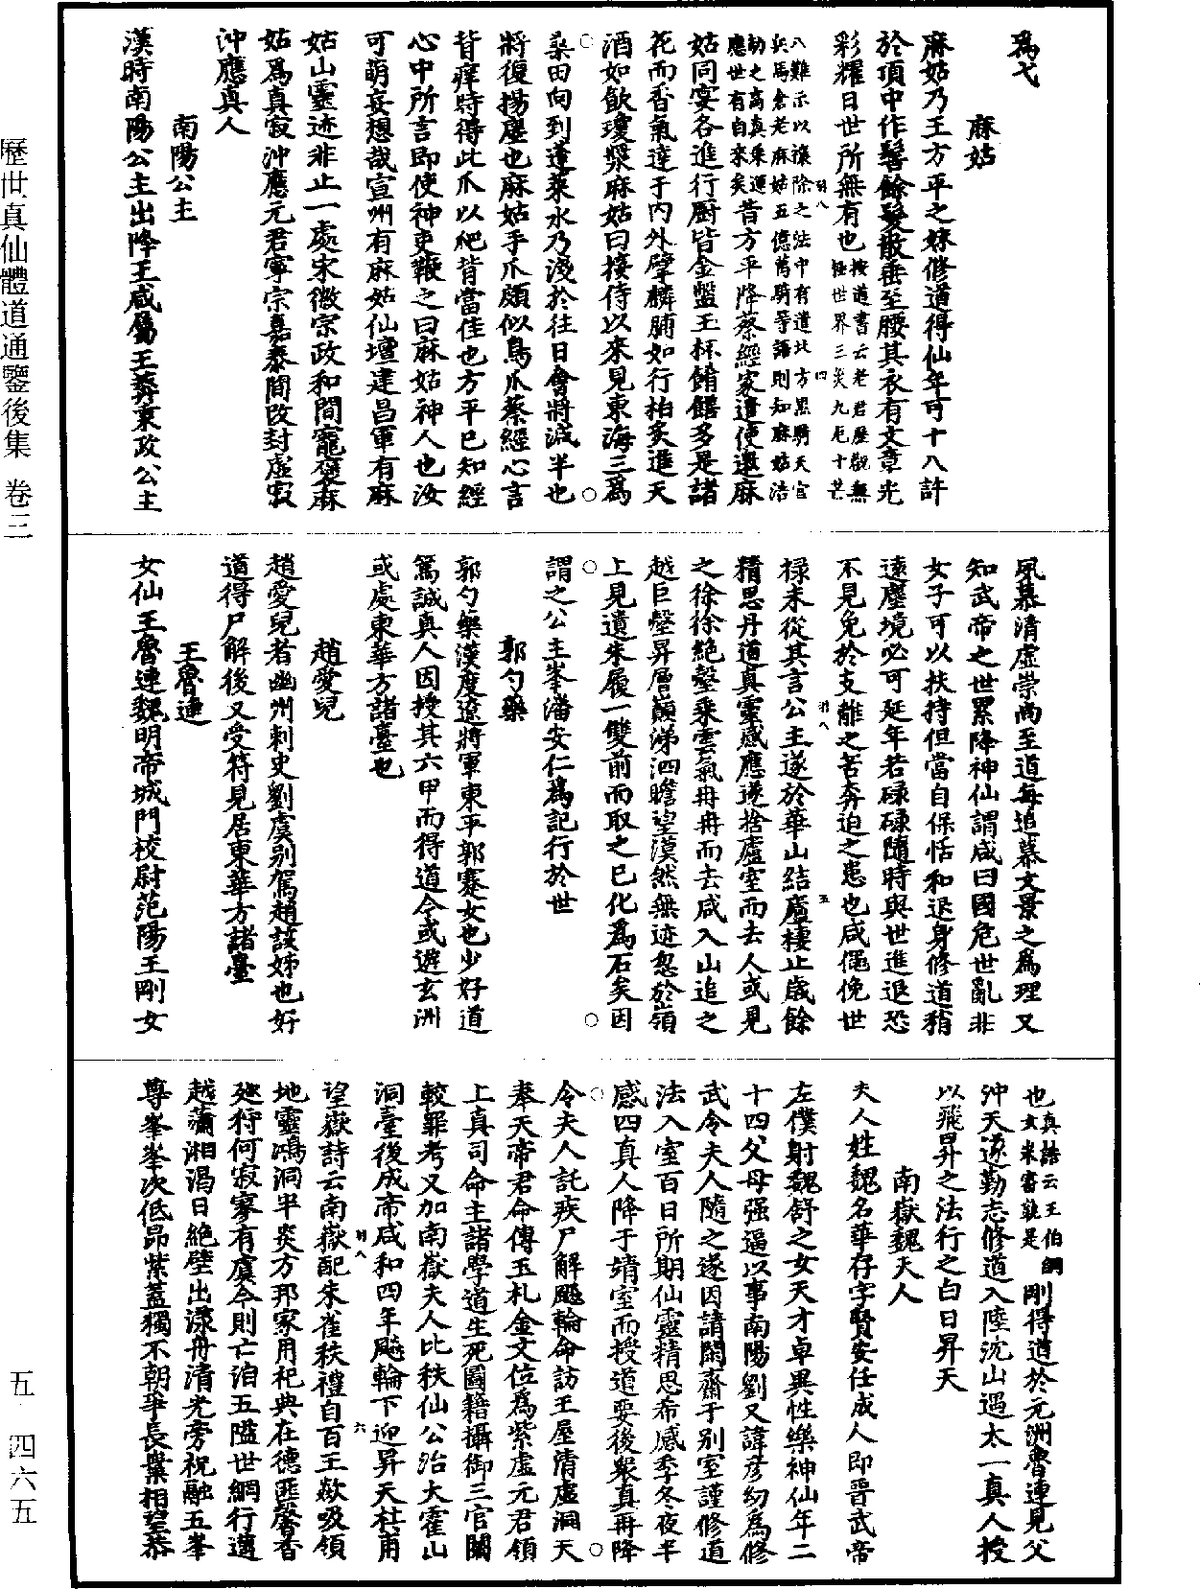 歷世真仙體道通鑒後集 卷三
爲弋
麻姑
麻姑乃王方平之妹修道得仙年可十八許
於頂中作髻餘髮散垂至腰其衣有文章光
彩耀日世所無有也按道書云老君歷觀無極世界三災九厄十芒
八難示以禳除之法中有道北方黑騎天官兵馬倉老麻姑五億萬騎等語則知麻姑浩
劫之高真乘運應世有自來矣昔方平降蔡經家遣使還麻
姑同宴各進行厨皆金盤玉杯餚饍多是諸
花而香氣達于内外擘麟脯如行柏炙進天
酒如飲瓊漿麻姑曰接侍以來見東海三爲
桑田向到蓬萊水乃淺於往日會將減半也
將復揚塵也麻姑手爪頗似鳥爪蔡經心言
背痒時得此爪以爬背當佳也方平已知經
心中所言即使神吏鞭之曰麻姑神人也汝
可萌妄想哉宣州有麻姑仙壇建昌軍有麻
姑山靈迹非止一處宋徽宗政和間寵褒麻
姑爲真寂沖應元君寧宗嘉泰間改封虛寂
沖應真人
南陽公主
漢時南陽公主出降王咸屬王莽秉政公主
夙慕清虛崇尚至道每追慕文景之爲理又
知武帝之世累降神仙謂咸曰國危世亂非
女子可以扶持但當自保恬和退身修道稍
遠塵境必可延年若碌碌隨時與世進退恐
不見免於支離之苦奔迫之患也咸僶俛世
祿未從其言公主遂於華山結廬棲止歲餘
精思丹道真靈感應遂捨廬室而去人或見
之徐徐絶壑乘雲氣冉冉而去咸入山追之
越巨壑昇層巔涕泗瞻望漠然無迹忽於嶺
上見遺朱履一雙前而取之已化爲石矣因
謂之公主峯潘安仁爲記行於世
郭勺藥
郭勺藥漢度遼將軍東平郭騫女也少好道
篤誠真人因授其六甲而得道今或遊玄洲
或處東華方諸臺也
趙愛兒
趙愛兒者幽州刺史劉虞别駕趙該姊也好
道得尸解後又受符見居東華方諸臺
王魯連
女仙王魯連魏明帝城門校尉范陽王剛女
也真誥云王伯綱女未審孰是剛得道於元洲魯連見父
沖天遂勤志修道入陸沈山遇太一真人授
以飛昇之法行之白日昇天
南嶽魏夫人
夫人姓魏名華存字賢安任成人即晉武帝
左僕射魏舒之女天才卓異性樂神仙年二
十四父母强逼以事南陽劉乂諱彦幼爲修
武令夫人隨之遂因請閑齋于别室謹修道
法入室百日所期仙靈精思希感季冬夜半
感四真人降于靖室而授道要後衆真再降
令夫人託疾尸解飈輪命訪王屋清虛洞天
奉天帝君命傳玉札金文位爲紫虛元君領
上真司命主諸學道生死圖籍攝御三官關
較罪考又加南嶽夫人比秩仙公治大霍山
洞臺後成帝咸和四年飈輪下迎昇天杜甫
望嶽詩云南嶽配朱雀秩禮自百王歘吸領
地靈鴻洞半炎方邦家用祀典在德匪馨香
廵狩何寂寥有虞今則亡洎五隘世網行邁
越瀟湘渴日絶壁出漾舟清光旁祝融五峯
尊峯峯次低昂紫蓋獨不朝爭長嶪相望恭
五·四六五